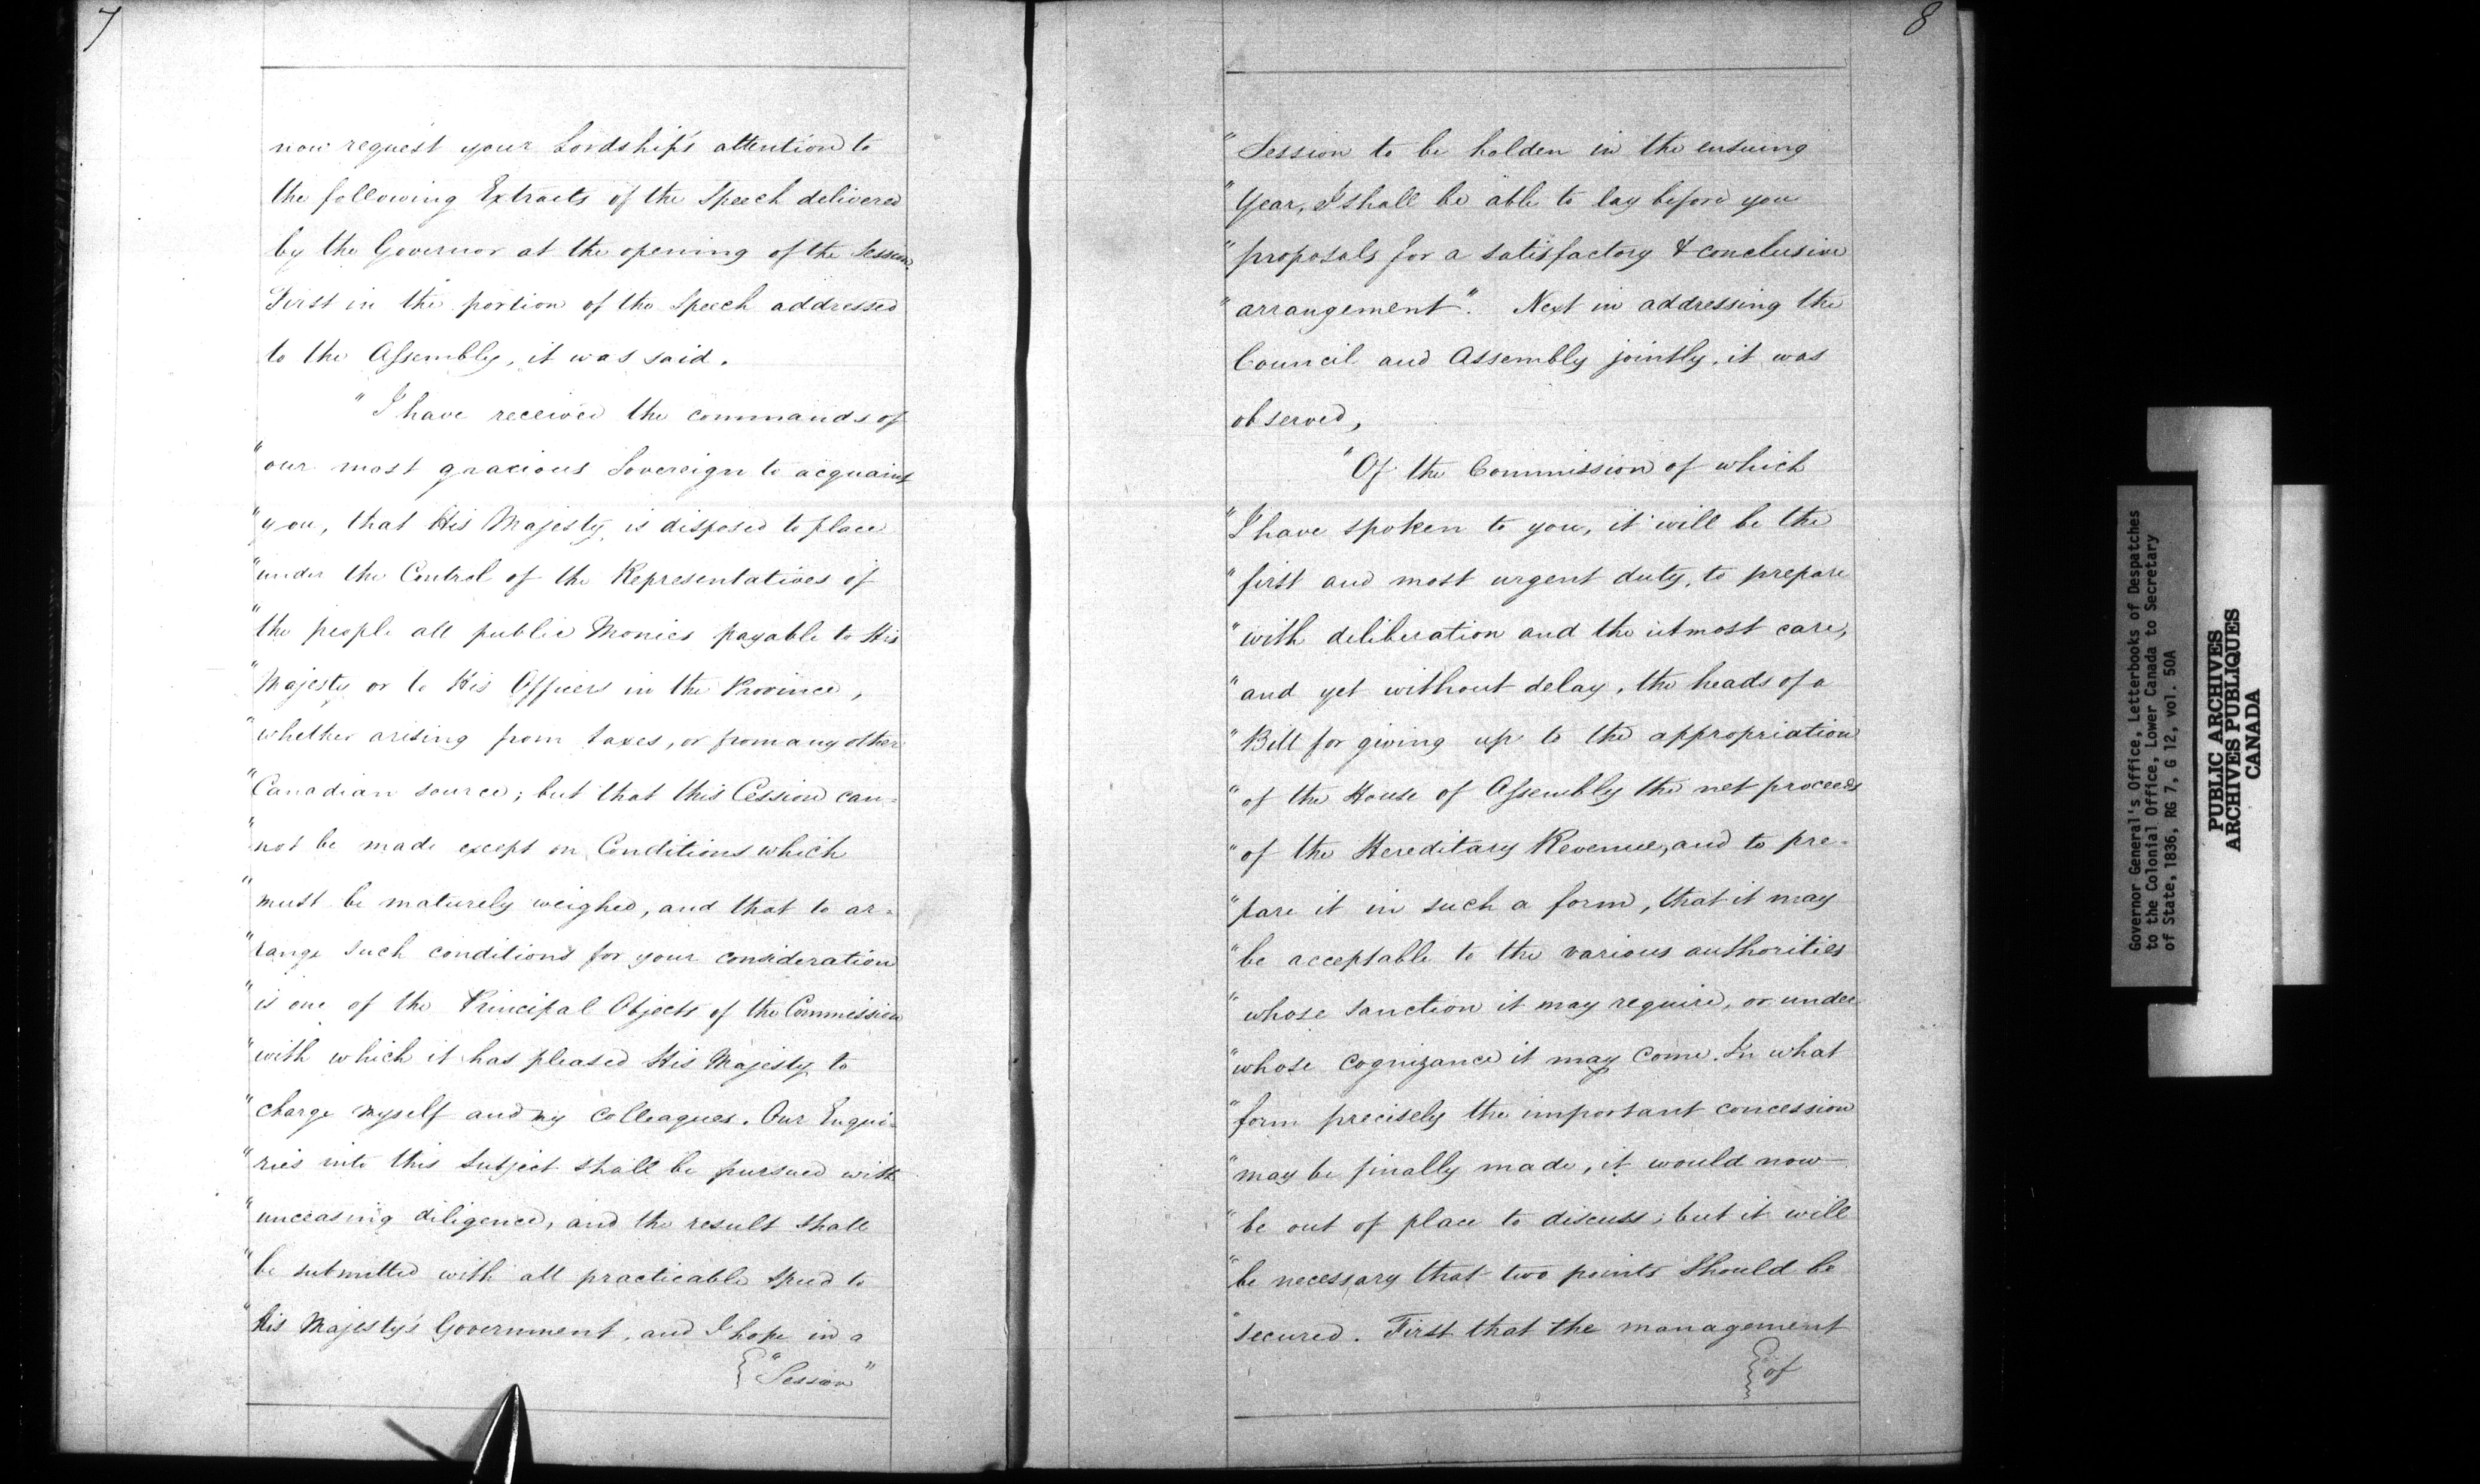 7
now request your Lordship's attention to
the following Extracts of the Speech delivered
by the Governor at the opening of the Session.
First in the portion of the Speech addressed
to the Assembly, it was said.
"I have received the commands of
"our most gracious Sovereign to acquaint
"you, that His Majesty is disposed to place
"under the Control of the Representatives of
"the people all public Monies payable to His
"Majesty or to His Officers in the Province,
"whether arising from taxes, or from any other
"Canadian source; but that this Cession can=
"not be made except on Conditions which
"must be maturely weighed, and that to ar=
"range such conditions for your consideration
"is one of the Principal Objects of the Commission
"with which it has pleased His Majesty to
"charge myself and my Colleagues. Our Enqui=
"ries into this Subject shall be pursued with
"unceasing diligence, and the result shall
"be submitted with all practicable Speed to
"His Majesty's Government, and I hope in a
"Session"
8
"Session to be holden in the ensuing
"Year, I shall be able to lay before you
"proposals for a satisfactory & conclusive
"arrangement". Next in addressing the
Council and Assembly jointly, it was
observed,
"Of the Commission of which
"I have spoken to you, it will be the
"first and most urgent duty, to prepare
"with deliberation and the utmost care,
"and yet without delay, the heads of a
"Bill for giving up to the appropriation
"of the House of Assembly the net proceeds
"of the Hereditary Revenue, and to pre-
"pare it in such a form, that it may
"be acceptable to the various authorities
"whose sanction it may require, or under
"whose cognizance it may come. In what
"form precisely the important concession
"may be finally made, it would now
"be out of place to discuss; but it will
"be necessary that two points Should be
"secured. First that the management
of
Governor General's Office, Letterbooks of Despatches
to the Colonial Office, Lower Canada to Secretary
of State, 1836, RG 7, G 12, vol. 50A
PUBLIC ARCHIVES
ARCHIVES PUBLIQUES
CANADA